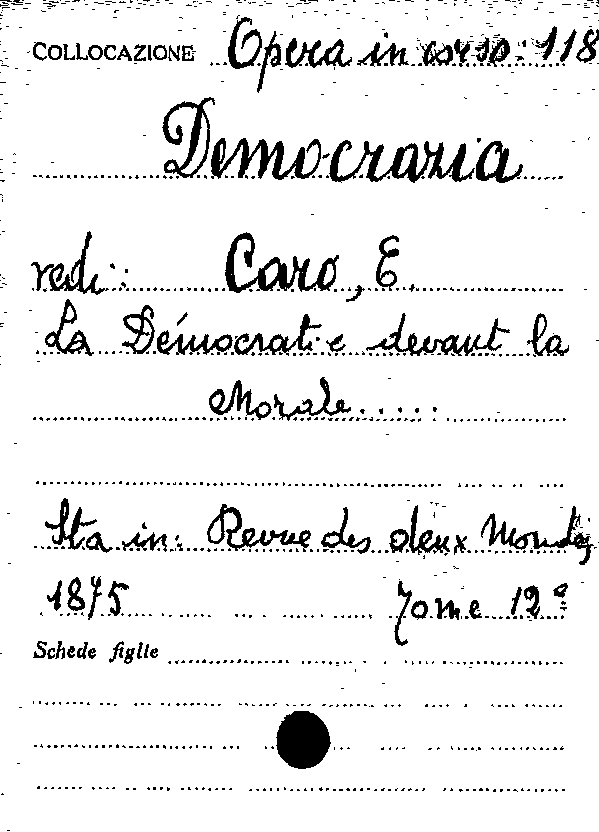 COLLOCAZIONE Opera in corso: 118
Democrazia
vedi: Caro, E.
La Démocratie devant la
Morale.....
Sta in: Revue des deux Mondes
1875 Tome 12º
Schede figlie